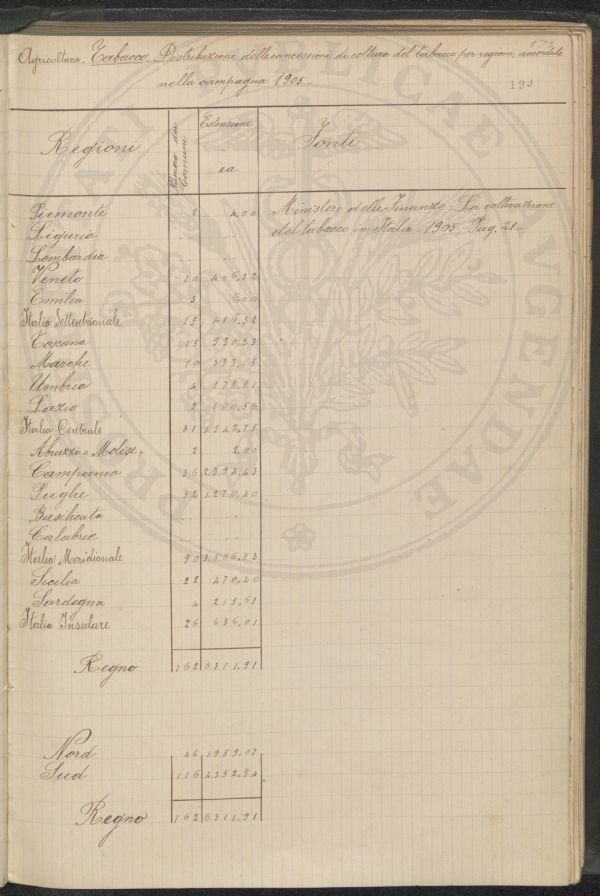 173
Agricoltura. Tabacco. Distribuzione delle concessioni di coltura del tabacco per regioni, accordate
nella campagna 1905.
190
Regioni
Numero dei Comuni
Estensione
ea
Fonti
Piemonte 2 4,00 Ministero delle Finanze. La coltivazione
Liguria ... ... del tabacco in Italia. 1905. Pag. 21.
Lombardia ... ...
Veneto 10 406,32
Emilia 3 6,00
Italia Settentrionale 15 416,32
Toscana 15 930,23
Marche 10 333,15
Umbria 4 178,81
Lazio 2 100,50
Italia Centrale 31 1542,75
Abruzzi e Molise. 2 2,00
Campania 36 2394,43
Puglie 52 1270,40
Basilicata ... ...
Calabrie ... ...
Italia Meridionale 90 3666,83
Sicilia 22 470,40
Sardegna 4 215,61
Italia Insulare 26 686,01
Regno 162 6311,91
Nord 46 1959,07
Sud 116 4352,84
Regno 162 6311,91